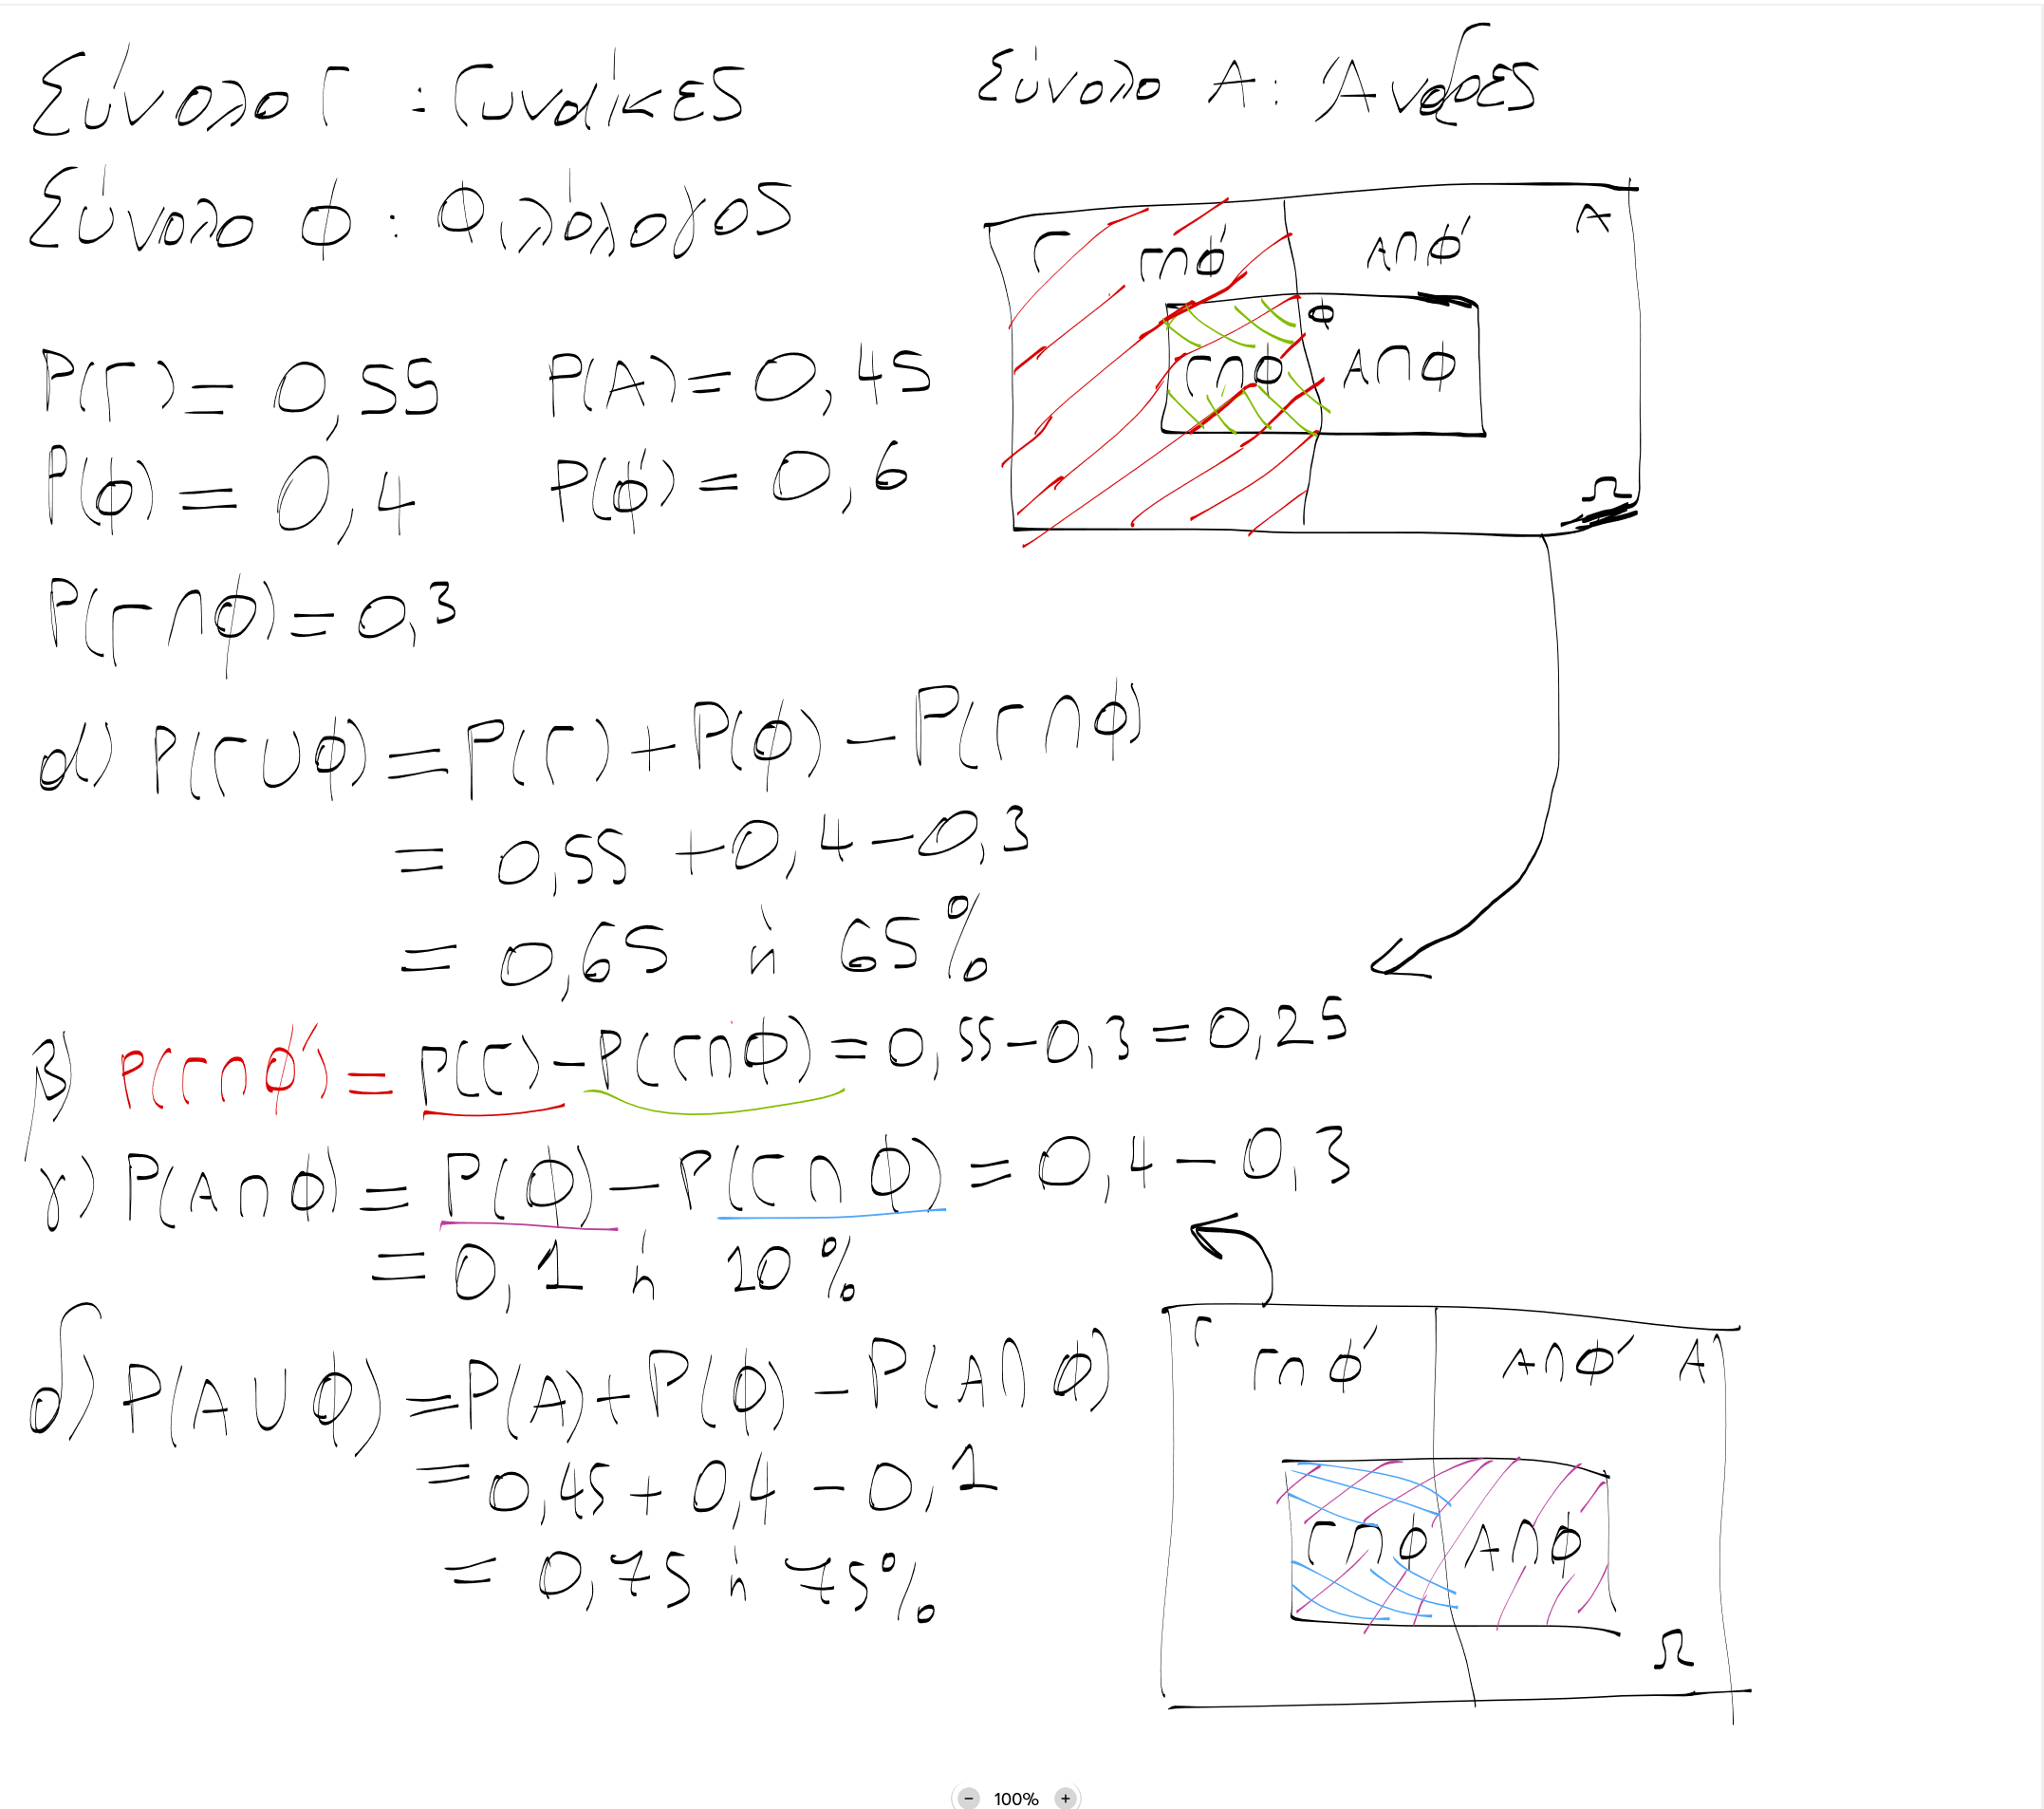 Σύνολο Γ : Γυναίκες
Σύνολο Α : Άνδρες
Σύνολο Φ : Φιλόλογος
P(Γ) = 0,55
P(A) = 0,45
P(Φ) = 0,4
P(Φ') = 0,6
P(Γ∩Φ) = 0,3
Γ
Γ∩Φ'
Α∩Φ'
Α
Φ
Γ∩Φ
Α∩Φ
Ω
α) P(Γ∪Φ) = P(Γ) + P(Φ) − P(Γ∩Φ)
= 0,55 + 0,4 − 0,3
= 0,65 ή 65%
β) P(Γ∩Φ') = P(Γ) − P(Γ∩Φ) = 0,55 − 0,3 = 0,25
γ) P(Α∩Φ) = P(Φ) − P(Γ∩Φ) = 0,4 − 0,3
= 0,1 ή 10%
δ) P(Α∪Φ) = P(Α) + P(Φ) − P(Α∩Φ)
= 0,45 + 0,4 − 0,1
= 0,75 ή 75%
Γ
Γ∩Φ'
Α∩Φ'
Α
Γ∩Φ
Α∩Φ
Ω
− 100% +